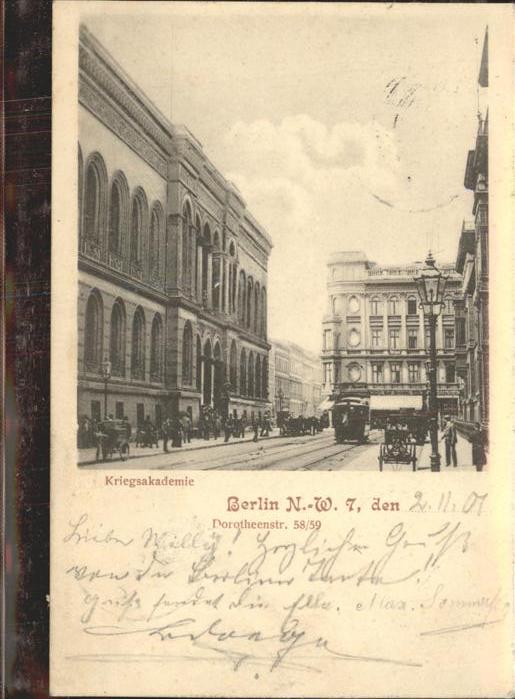 Kriegsakademie
Berlin N.-W. 7, den 2.11.01
Dorotheenstr. 58/59
Lieber Willy! Herzlichen Gruß
von der Berliner Tante!!
Gruß sendet die Max.